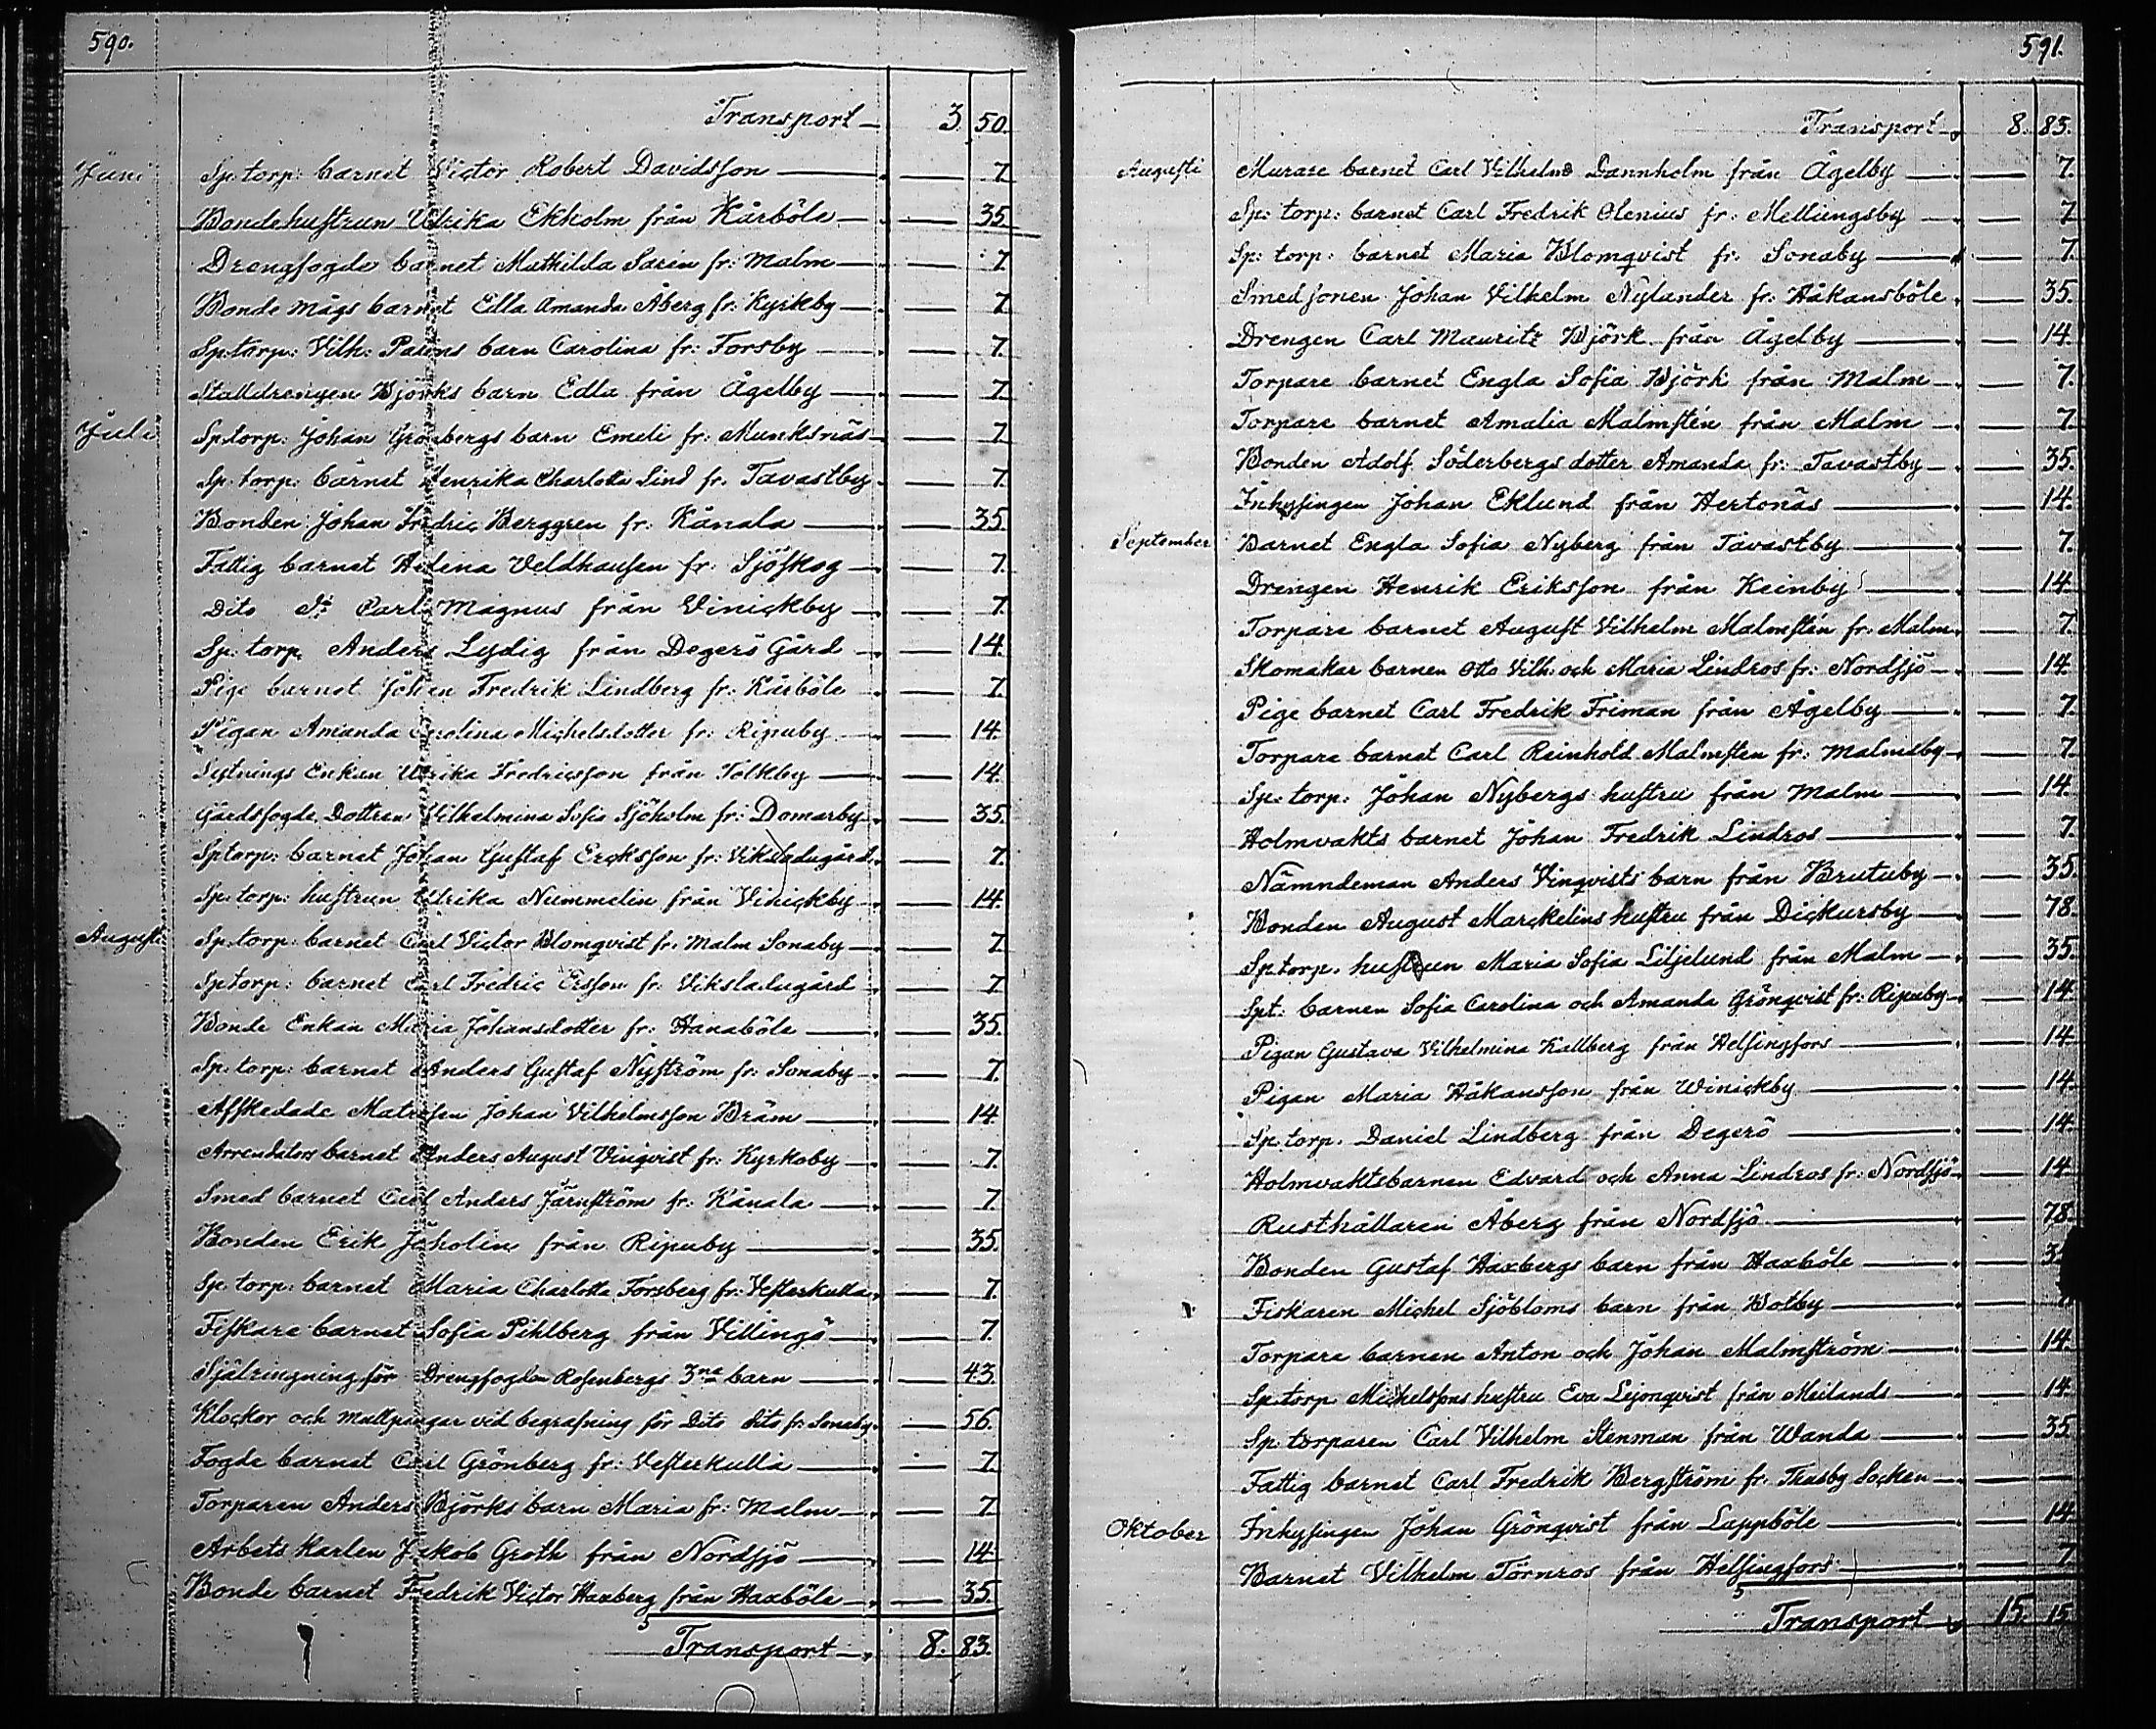 590.
Transport 3. 50.
Juni Sp. torp: barnet Victor Robert Davidsson 7.
Bondehustrun Ulrika Ekholm från Kårböle 35.
Drengfogde barnet Mathilda Sarén fr: Malm 7
Bonde mågs barnet Edla Amanda Åberg fr: Kyrkby 7
Sp: torp: Vilh: Pasens barn Carolina fr: Forsby 7.
Stalldrengen Björks barn Edla från Ågelby 7.
Juli Sp: torp: Johan Grönbergs barn Emeli fr: Munksnäs 7
Sp: torp: barnet Henrika Charlotta Lind fr. Tavastby 7.
Bonden Johan Fredric Berggren fr: Kånala 35.
Fattig barnet Helena Veldhausen fr: Sjöskog 7.
Dito dt Carl Magnus från Vinickby 7.
Sp: torp. Anders Lydig från Degerö Gård 14.
Pige barnet Johan Fredrik Lindberg fr: Kårböle 7.
Pigan Amanda Carolina Michelsdotter fr: Ripuby 14
Sytnings Enkan Ulrika Fredricsson från Tolkby 14.
Gårdsfogde Dottren Vilhelmina Sofia Sjöholm fr: Domarby 35.
Sp: torp: barnet Johan Gustaf Ericksson fr: Viksladugård 7.
Sp: torp: hustrun Ulrika Nummelin från Vinickby 14.
Augusti Sp: torp: barnet Carl Victor Blomqvist fr: Malm Sonaby 7.
Sp: torp: barnet Carl Fredric Ersson fr: Viksladugård 7
Bonde Enkan Maria Johansdotter fr: Hanaböle 35.
Sp: torp: barnet Anders Gustaf Nyström fr: Sonaby 7.
Afskedade Matrosen Johan Vilhelmsson Bräm 14.
Arrendators barnet Anders August Vinqvist fr: Kyrkoby 7.
Smed barnet Carl Anders Järnström fr: Kånala 7
Bonden Erik Joholin från Ripuby 35.
Sp: torp: barnet Maria Charlotta Forsberg fr: Vesterkulla 7.
Fiskare barnet Sofia Pihlberg från Villingö 7.
Själringning för Drengfogden Rosenbergs 3ne barn 43.
Klockor och mullpengar vid begrafning för Dito dito fr: Sonaby 56.
Fogde barnet Carl Grönberg fr: Vesterkulla 7.
Torparen Anders Björks barn Maria fr: Malm 7
Arbets karlen Jakob Groth från Nordsjö 14
Bonde barnet Fredrik Victor Haxberg från Haxböle 35.
Transport 8. 83.
591.
Transport 8. 83.
Augusti Murare barnet Carl Vilhelm Dannholm från Ågelby 7.
Sp: torp: barnet Carl Fredrik Olenius fr: Mellungsby 7
Sp: torp: barnet Maria Blomqvist fr. Sonaby 7.
Smedsonen Johan Vilhelm Nylander fr: Håkansböle 35.
Drengen Carl Mauritz Björk från Ågelby 14.
Torpare barnet Engla Sofia Björk från Malm 7.
Torpare barnet Amalia Malmstén från Malm 7.
Bonden Adolf Söderbergs dotter Amanda fr: Tavastby 35.
Inhysingen Johan Eklund från Hertonäs 14.
September Barnet Engla Sofia Nyberg från Tavastby 7.
Drengen Henrik Eriksson från Keinby 14.
Torpare barnet August Vilhelm Malmstén fr: Malm 7.
Skomakar barnen Otto Vilh: och Maria Lindros fr: Nordsjö 14
Pige barnet Carl Fredrik Friman från Ågelby 7.
Torpare barnet Carl Reinhold Malmsten fr: Malmsby 7.
Sp: torp: Johan Nybergs hustru från Malm 14.
Holmvakts barnet Johan Fredrik Lindros 7.
Nämndeman Anders Vinqvists barn från Brutuby 35.
Bonden August Marckelins hustru från Dickursby 78.
Sp: torp. hustrun Maria Sofia Liljelund från Malm 35.
Spt: barnen Sofia Carolina och Amanda Grönqvist fr: Ripuby 14.
Pigan Gustava Vilhelmina Kallberg från Helsingfors 14
Pigan Maria Håkansson från Winickby 14.
Sp: torp. Daniel Lindberg från Degerö 14.
Holmvaktsbarnen Edvard och Anna Lindros fr: Nordsjö 14
Rusthållaren Åberg från Nordsjö 78.
Bonden Gustaf Haxbergs barn från Haxböle
Fiskaren Michel Sjöbloms barn från Botby
Torpare barnen Anton och Johan Malmström 14.
Sp: torp Michelssons hustru Eva Lejonqvist från Meilands 14.
Sp: torparen Carl Vilhelm Stenman från Wanda 35
Fattig barnet Carl Fredrik Bergström fr: Thusby Socken
Oktober Inhysingen Johan Grönqvist från Lappböle 14
Barnet Vilhelm Törnros från Helsingfors 7
Transport 15. 15